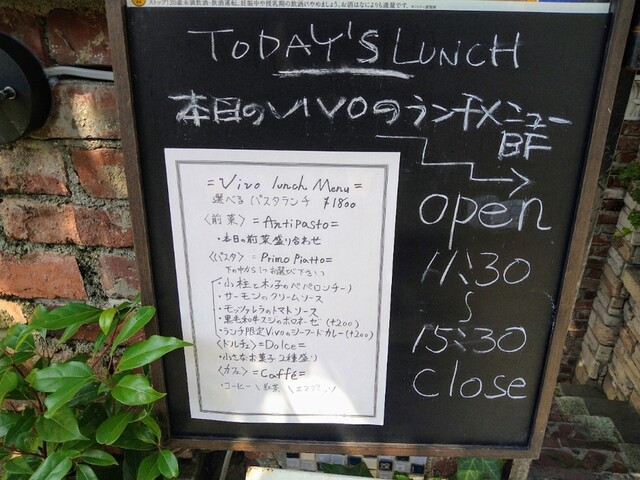 ストップ!20歳未満飲酒・飲酒運転。妊娠中や授乳期の飲酒はやめましょう。お酒はなによりも適量です。
TODAY'S LUNCH
本日のVIVOのランチメニュー
BF
= Vivo lunch Menu =
選べるパスタランチ ¥1800
〈前菜〉=Antipasto=
・本日の前菜盛り合わせ
〈パスタ〉=Primo Piatto=
下の中から1つお選び下さい
・小柱と木の子のペペロンチーノ
・サーモンのクリームソース
・モッツァレラのトマトソース
・黒毛和牛スジのボロネーゼ (+200)
・ランチ限定Vivoのシーフードカレー(+200)
〈ドルチェ〉=Dolce=
・小さなお菓子2種盛り
〈カフェ〉=Caffé=
・コーヒー \ 紅茶 \ エスプレッソ
open
11:30
~
15:30
close